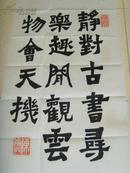 靜對古書尋
樂趣閒觀雲
物會天機